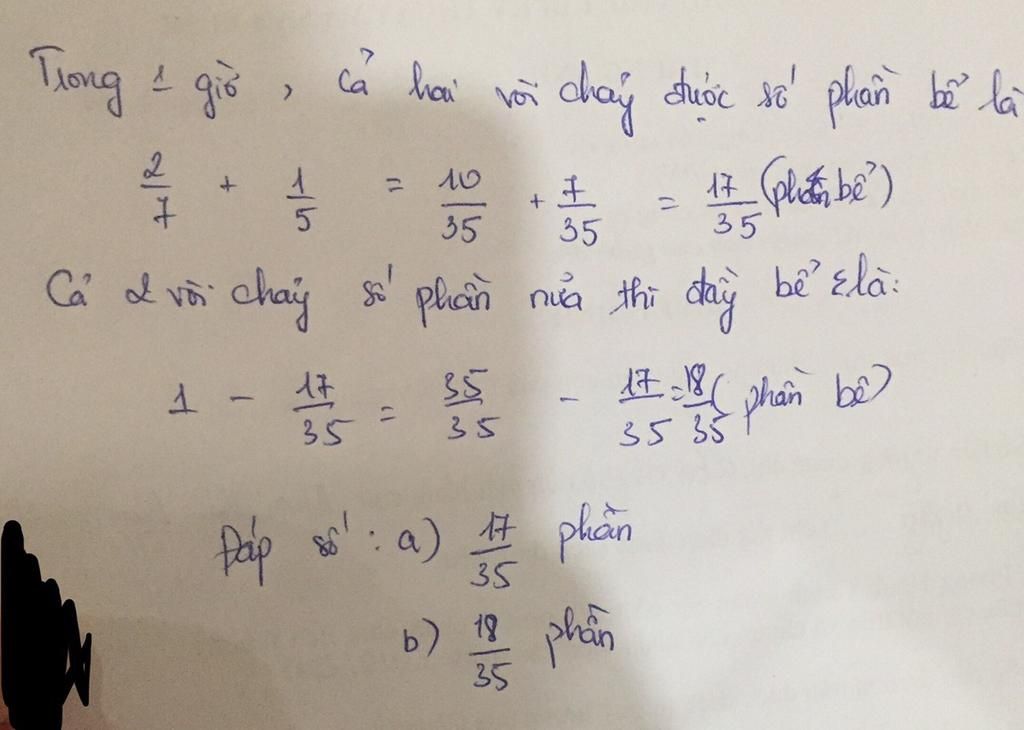 Trong 1 giờ, cả hai vòi chảy được số phần bể là
2/7 + 1/5 = 10/35 + 7/35 = 17/35 (phần bể)
Cả 2 vòi chảy số phần nửa thì đầy bể là:
1 - 17/35 = 35/35 - 17/35 = 18/35 (phần bể)
Đáp số: a) 17/35 phần
b) 18/35 phần